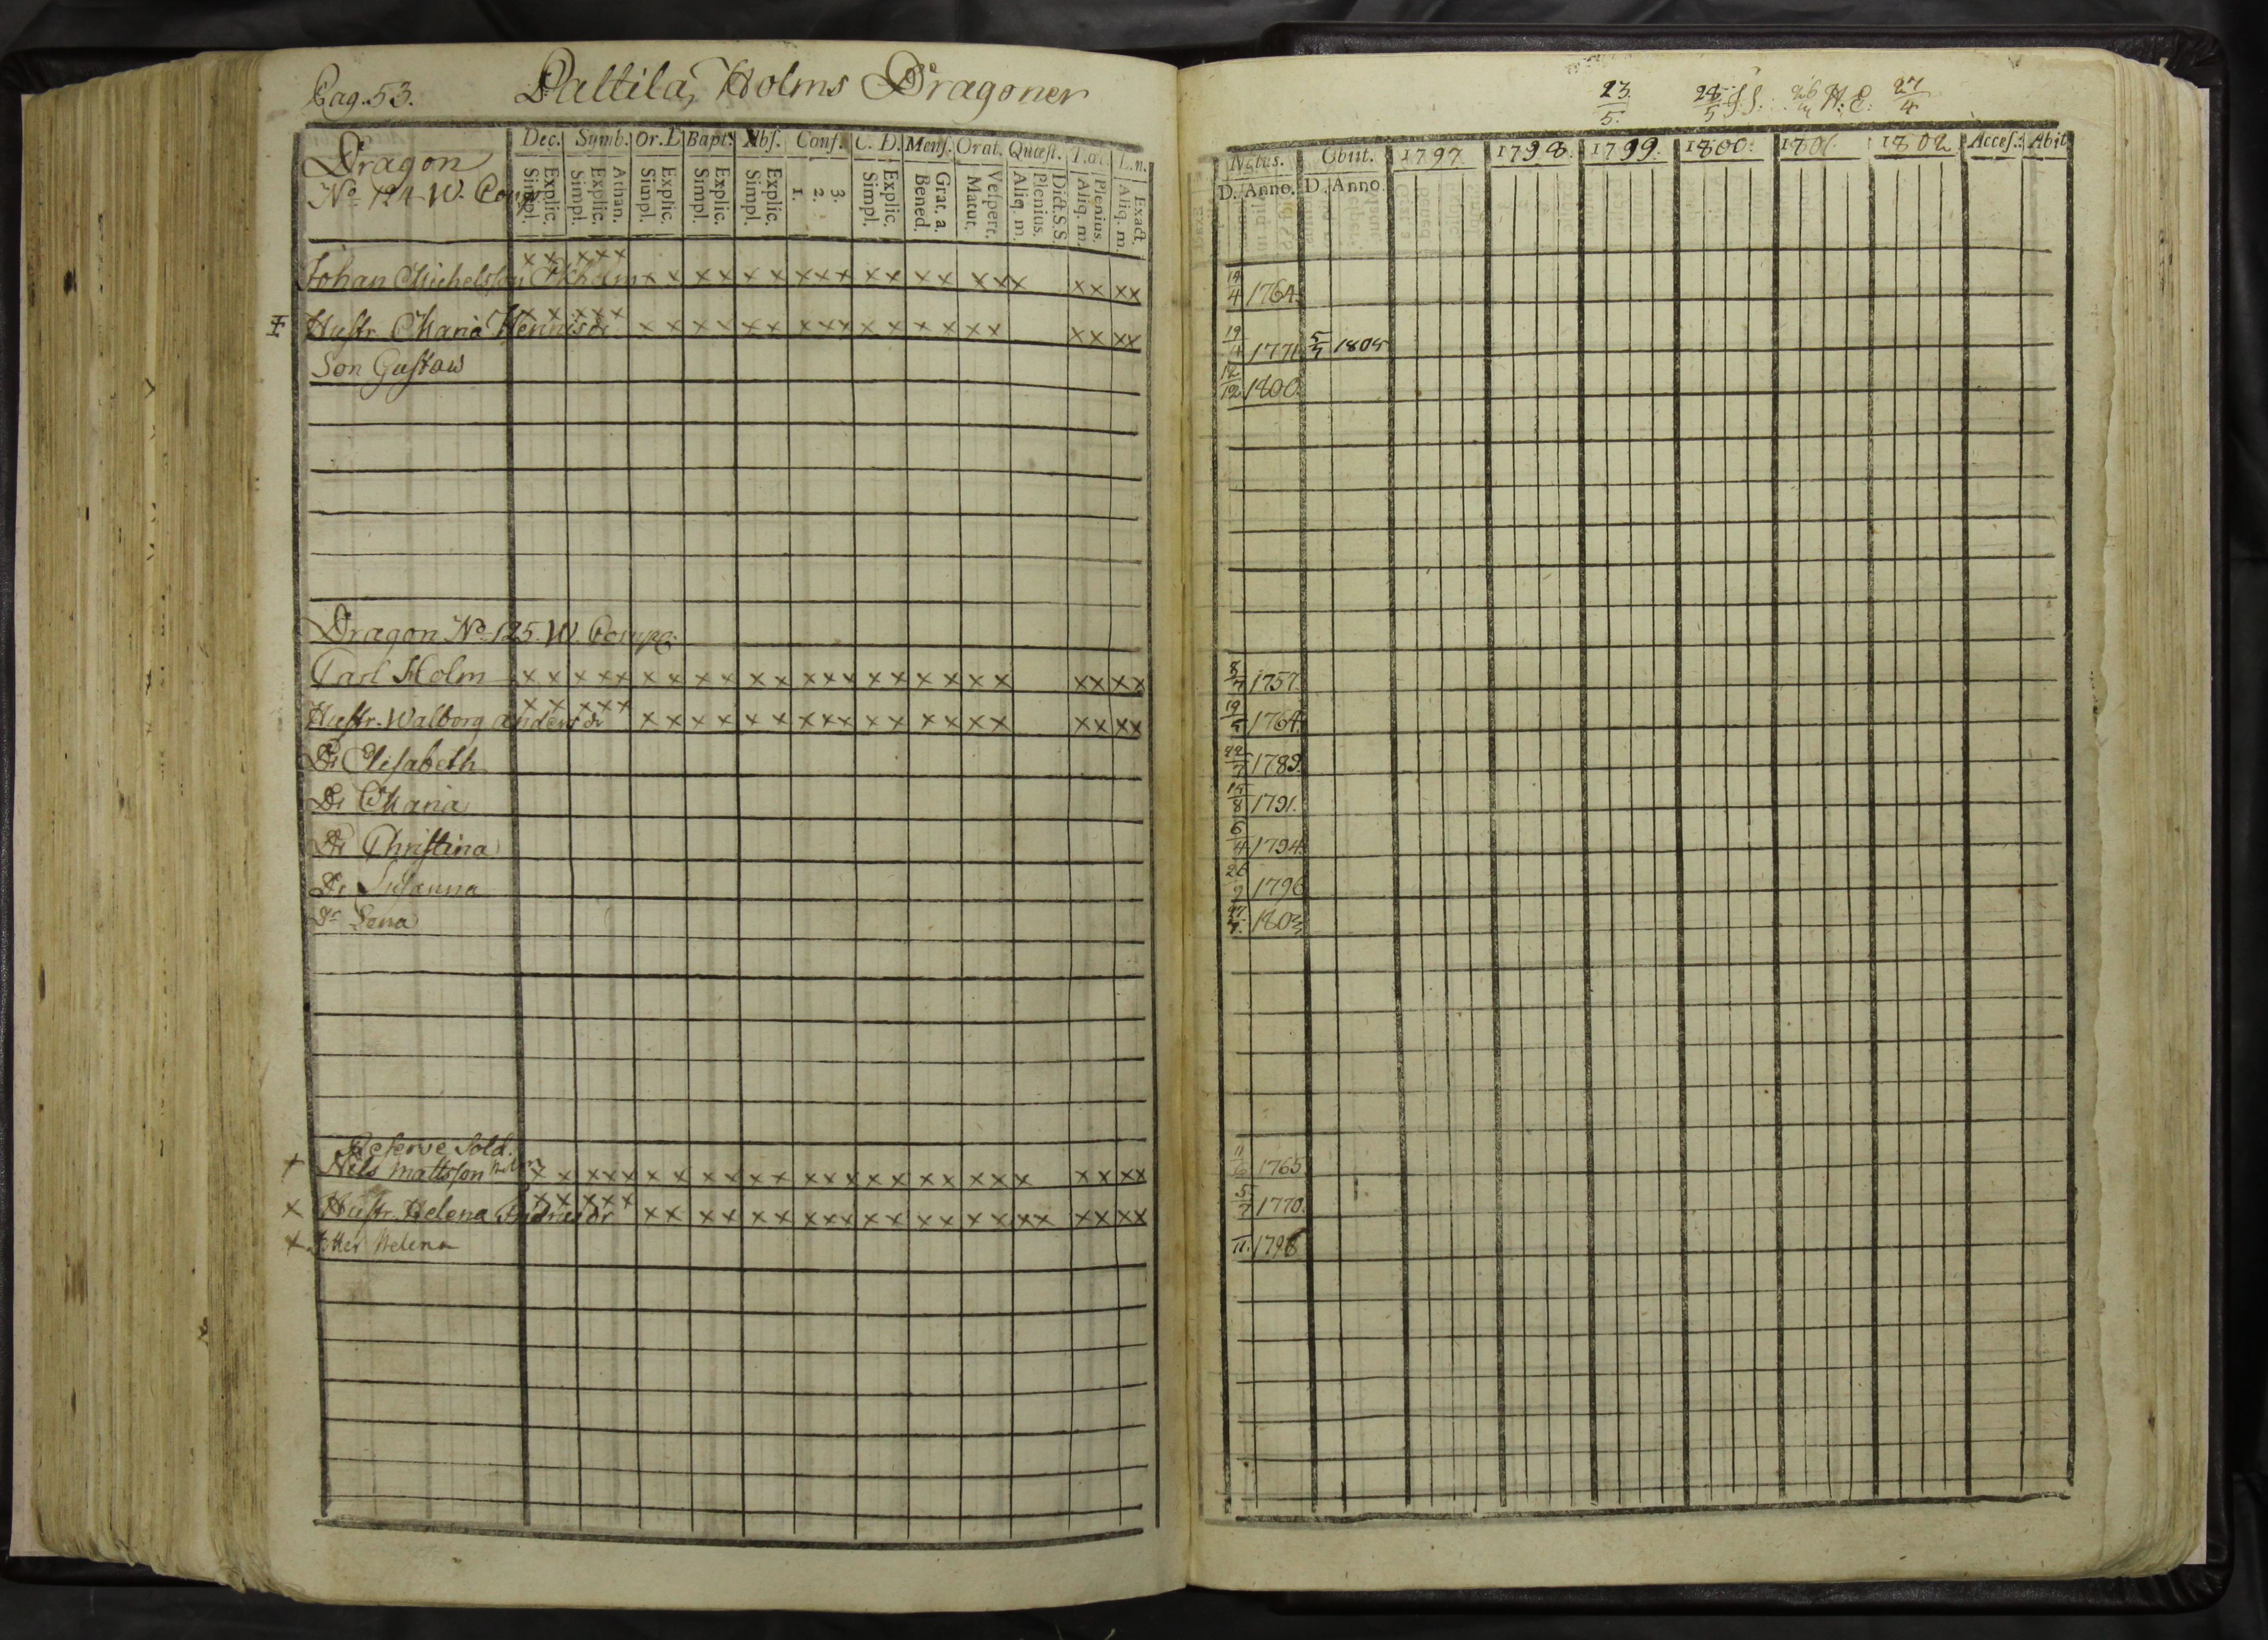 Pag. 53. Paltila, Holms Dragoner
Dragon
No 124 W. Comp
Dec. Symb. Or. D. Bapt. Abs. Conf. C. D. Mens. Orat. Quæst. T. œ. L. n.
Simpl. Explic. Simpl. Explic. Athan. Simpl. Explic. Simpl. Explic. Simpl. Explic. 1. 2. 3. Simpl. Explic. Bened. Grat. a. Matut. Vespert. Aliq. m. Plenius. Dict. S.S. Aliq. m. Plenius. Aliq. m. Exact.
Johan Michelsson Ekholm x x x x x x x x x x x x x x x x x x x x x x x x x x
Hustr. Maria Hennisdr x x x x x x x x x x x x x x x x x x x x x x x x
Son Gustaw
Dragon No 125. W. Comp:
Carl Holm x x x x x x x x x x x x x x x x x x x x x x x x
Hustr. Walborg Andersdr x x x x x x x x x x x x x x x x x x x x x x x x
Dr Elisabeth
Dr Maria
Dr Christina
Dr Susanna
Dr Lena
Reserve Sold.
+ Nils Mattsson x x x x x x x x x x x x x x x x x x x x x x x x x
x Hustr. Helena Andersdr x x x x x x x x x x x x x x x x x x x x x x x x x x
+ Dotter Helena
23/5. 28/5 J.J. 26 H. E. 27/4
Natus. Obiit. 1797 1798. 1799. 1800. 1801. 1802 Acces. Abit
D. Anno. D. Anno.
19/4 1764.
19/4 1771 5/7 1805
12/12 1800.
8/7 1757.
19/5 1764.
22/7 1789.
15/8 1791.
6/4 1794.
26/9 1796
27/7. 1803
11/6 1765.
5/7 1770.
/11. 1798